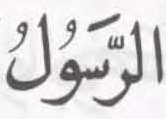 الرَّسُوْلُ